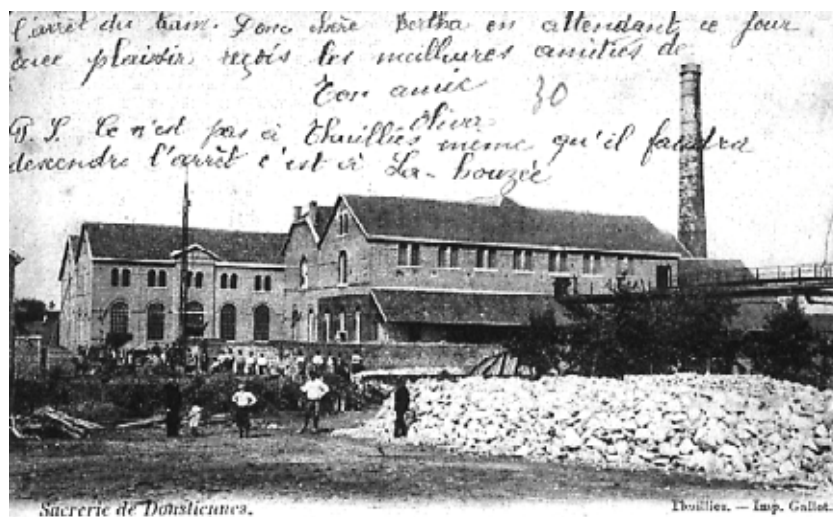 l'arrêt du tram. Donc chère Bertha en attendant ce jour
avec plaissir reçois les meilhures amitiés de
Ton amie
30
Oliva
P. S. Ce n'est pas à Thuillies meme qu'il faudra
dexendre l'arrêt c'est à La-houzée
Sucrerie de Donstiennes.
Thuillies. — Imp. Gallot.